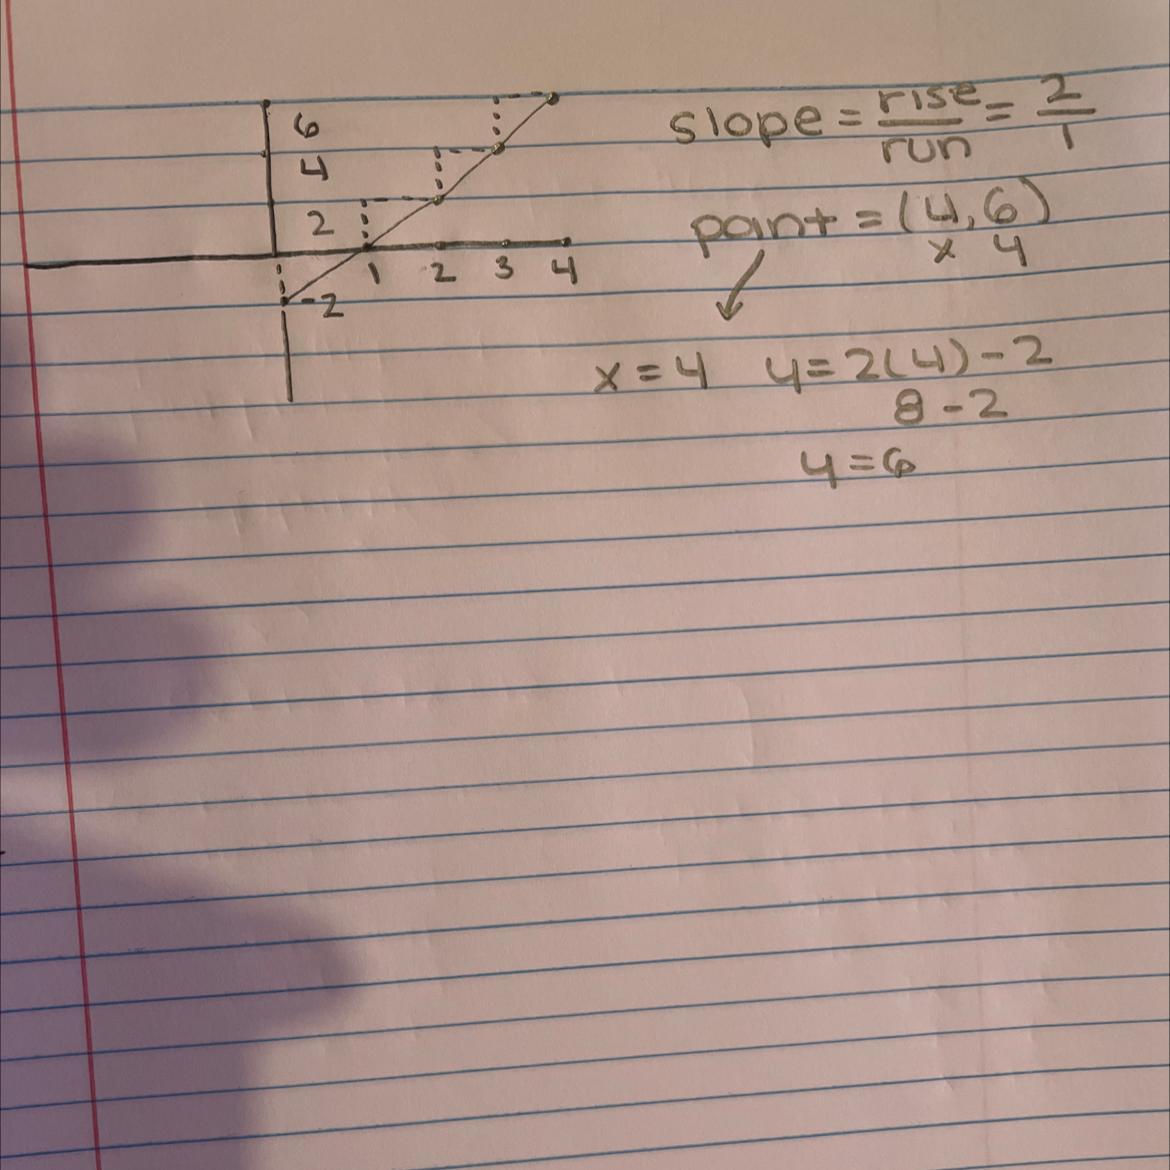 6
4
2
1 2 3 4
-2
slope = rise/run = 2/1
point = (4, 6)
x y
x = 4 y = 2(4) - 2
8 - 2
y = 6